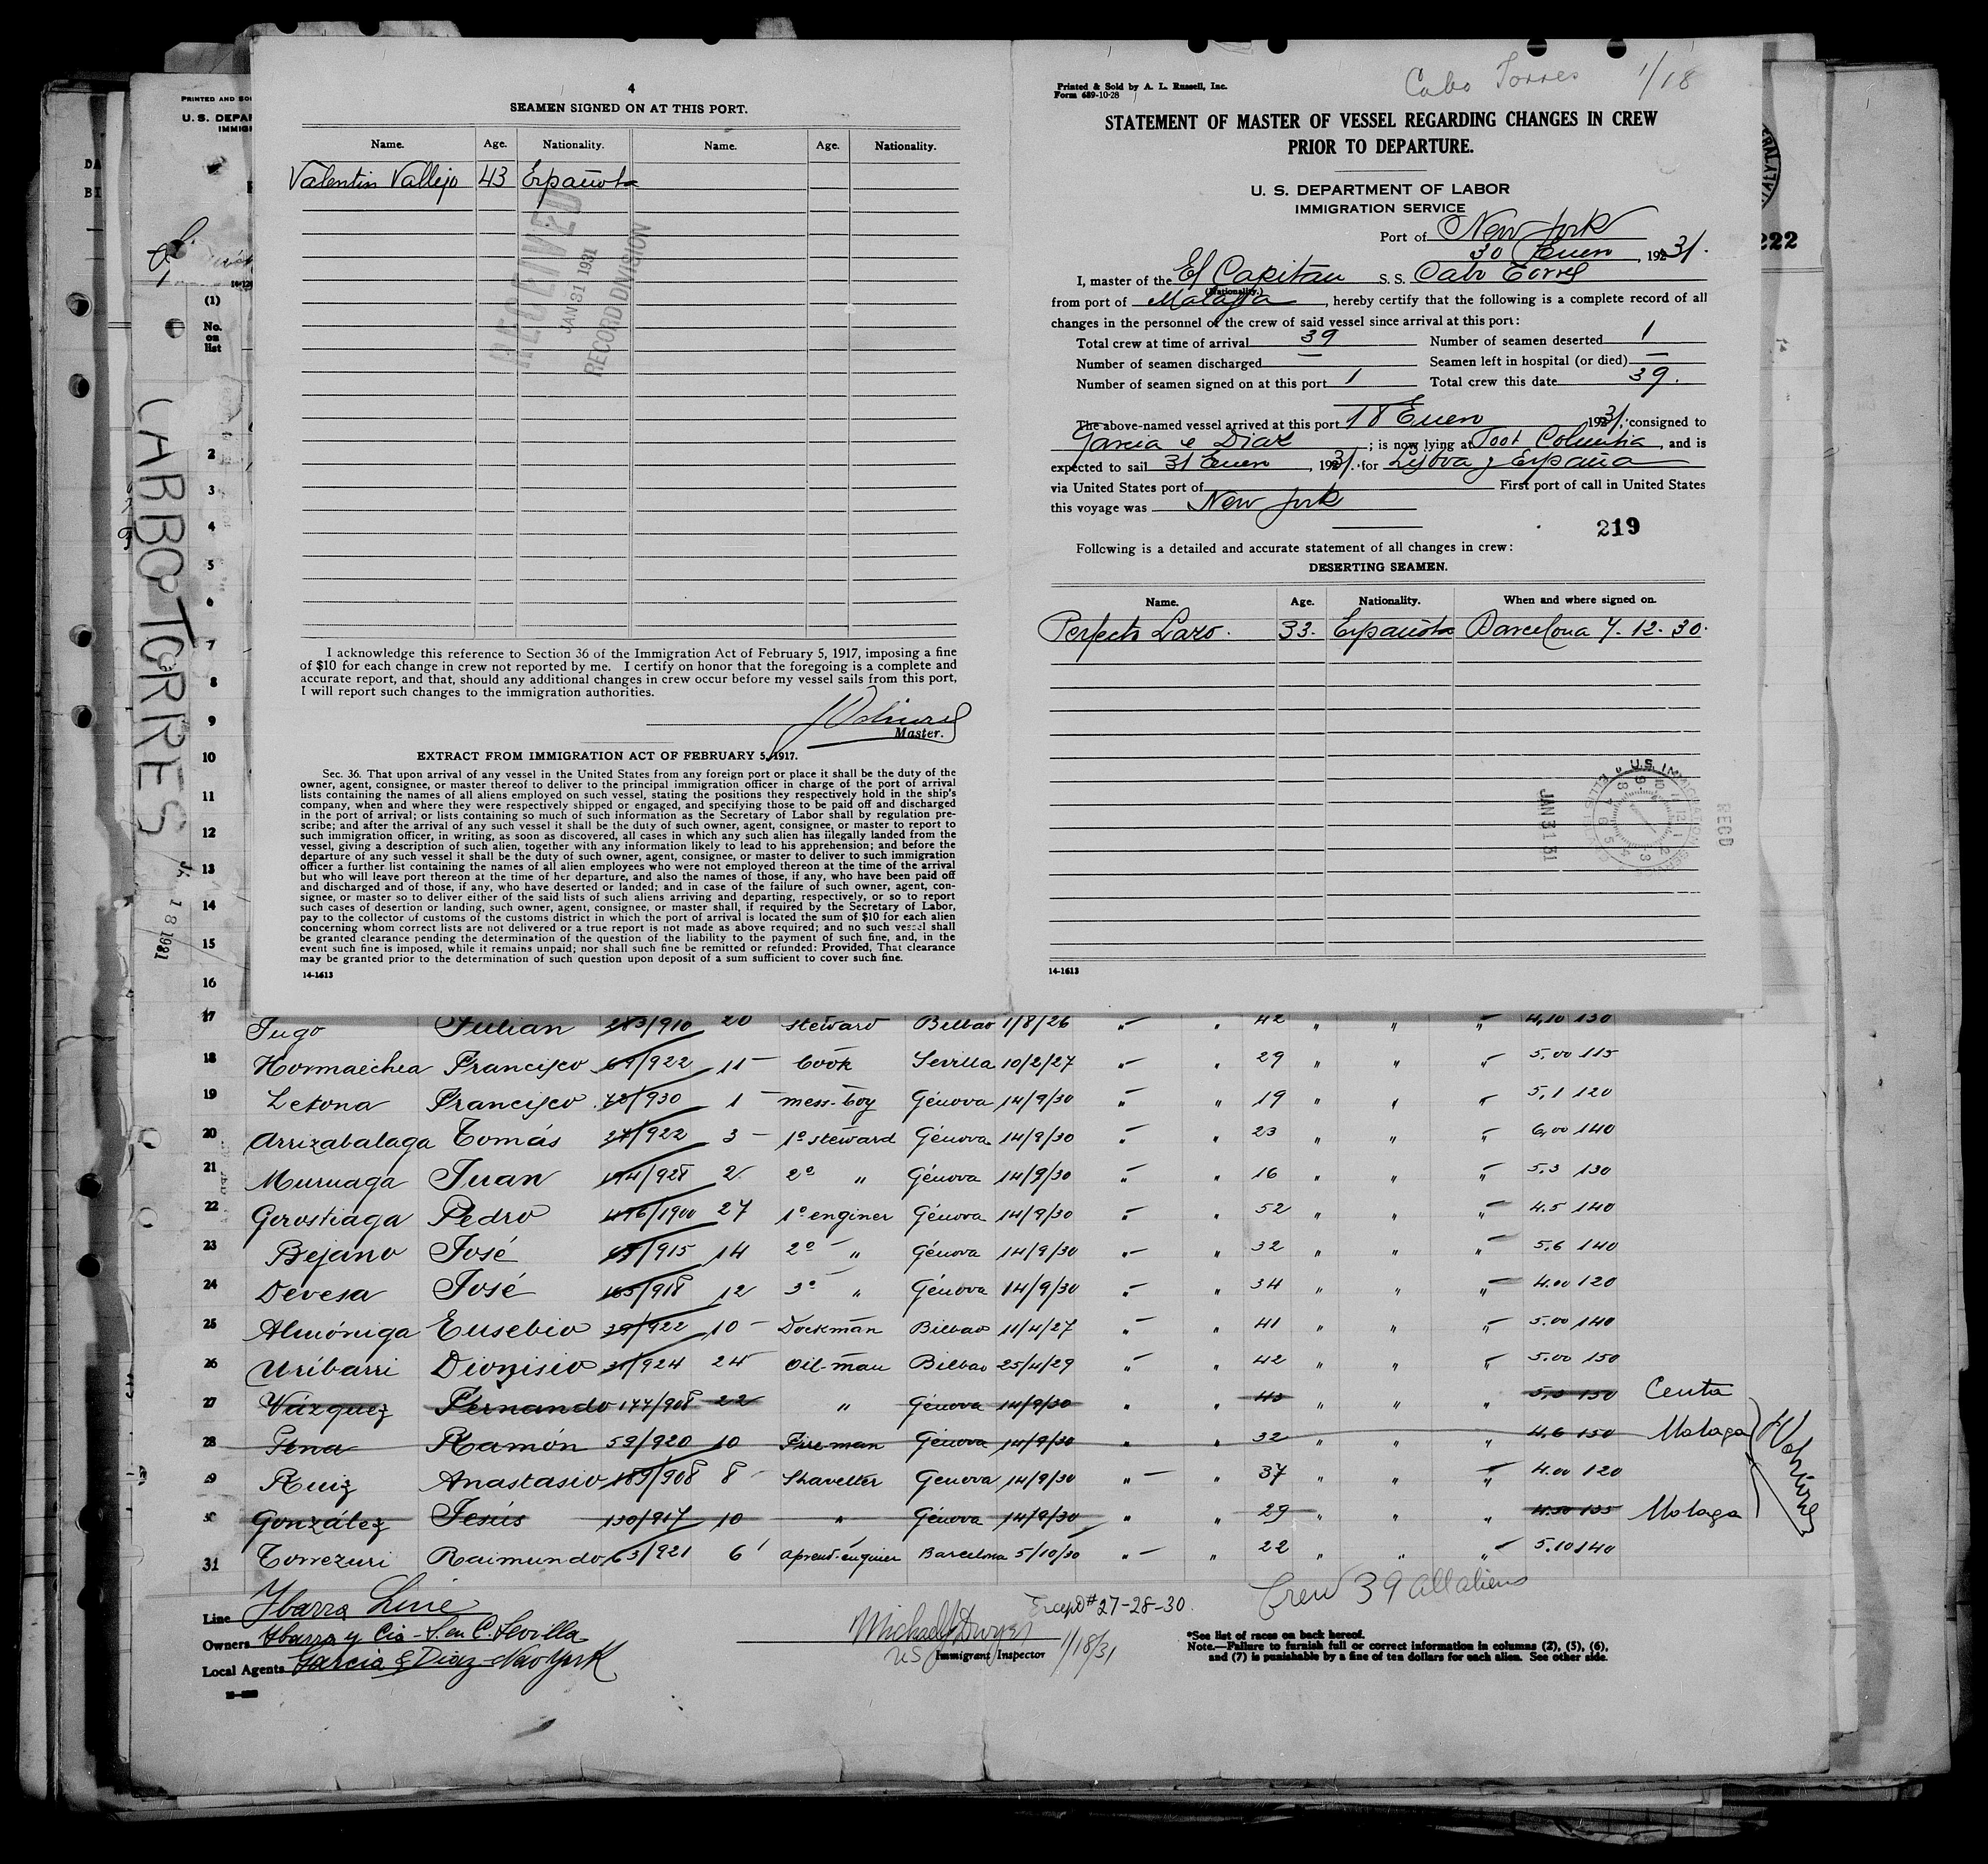 4
SEAMEN SIGNED ON AT THIS PORT.
Name. Age. Nationality. Name. Age. Nationality.
Valentin Vallejo 43 Española
RECEIVED
JAN 31 1931
RECORD DIVISION
I acknowledge this reference to Section 36 of the Immigration Act of February 5, 1917, imposing a fine
of $10 for each change in crew not reported by me. I certify on honor that the foregoing is a complete and
accurate report, and that, should any additional changes in crew occur before my vessel sails from this port,
I will report such changes to the immigration authorities.
Master.
EXTRACT FROM IMMIGRATION ACT OF FEBRUARY 5, 1917.
Sec. 36. That upon arrival of any vessel in the United States from any foreign port or place it shall be the duty of the
owner, agent, consignee, or master thereof to deliver to the principal immigration officer in charge of the port of arrival
lists containing the names of all aliens employed on such vessel, stating the positions they respectively hold in the ship's
company, when and where they were respectively shipped or engaged, and specifying those to be paid off and discharged
in the port of arrival; or lists containing so much of such information as the Secretary of Labor shall by regulation pre-
scribe; and after the arrival of any such vessel it shall be the duty of such owner, agent, consignee, or master to report to
such immigration officer, in writing, as soon as discovered, all cases in which any such alien has illegally landed from the
vessel, giving a description of such alien, together with any information likely to lead to his apprehension; and before the
departure of any such vessel it shall be the duty of such owner, agent, consignee, or master to deliver to such immigration
officer a further list containing the names of all alien employees who were not employed thereon at the time of the arrival
but who will leave port thereon at the time of her departure, and also the names of those, if any, who have been paid off
and discharged and of those, if any, who have deserted or landed; and in case of the failure of such owner, agent, con-
signee, or master so to deliver either of the said lists of such aliens arriving and departing, respectively, or so to report
such cases of desertion or landing, such owner, agent, consignee, or master shall, if required by the Secretary of Labor,
pay to the collector of customs of the customs district in which the port of arrival is located the sum of $10 for each alien
concerning whom correct lists are not delivered or a true report is not made as above required; and no such vessel shall
be granted clearance pending the determination of the question of the liability to the payment of such fine, and, in the
event such fine is imposed, while it remains unpaid; nor shall such fine be remitted or refunded: Provided, That clearance
may be granted prior to the determination of such question upon deposit of a sum sufficient to cover such fine.
14-1613
Printed & Sold by A. L. Russell, Inc.
Form 689-10-28
Cabo Torres 1/18
STATEMENT OF MASTER OF VESSEL REGARDING CHANGES IN CREW
PRIOR TO DEPARTURE.
U. S. DEPARTMENT OF LABOR
IMMIGRATION SERVICE
Port of New York
30 Enero, 1931.
I, master of the El Capitan S. S. Cabo Torres
(Nationality.)
from port of Malaga, hereby certify that the following is a complete record of all
changes in the personnel of the crew of said vessel since arrival at this port:
Total crew at time of arrival 39 Number of seamen deserted 1
Number of seamen discharged — Seamen left in hospital (or died) —
Number of seamen signed on at this port 1 Total crew this date 39.
The above-named vessel arrived at this port 18 Enero 1931. consigned to
Garcia e Diaz; is now lying at Foot Columbia, and is
expected to sail 31 Enero, 1931. for Lisboa y España
via United States port of First port of call in United States
this voyage was New York
219
Following is a detailed and accurate statement of all changes in crew:
DESERTING SEAMEN.
Name. Age. Nationality. When and where signed on.
Perfecto Lazo. 33. Española Barcelona 7. 12. 30.
JAN 31 31
RECD
14-1613
222
PRINTED AND
U. S. DEPA
IMMIG
(1)
No.
on
list
CABBO TORRES
18 1931
2
3
4
5
6
7
8
9
10
11
12
13
14
15
16
17 Yugo Julian 283/910 20 steward Bilbao 1/8/26 " 42 " " " 4,10 130
18 Hormaechea Francisco 69/922 11 Cook Sevilla 10/2/27 " " 29 " " " 5.00 115
19 Letona Francisco 73/930 1 mess-boy Génova 14/9/30 " " 19 " " " 5,1 120
20 Arrizabalaga Tomás 37/922 3 1º steward Génova 14/9/30 " " 23 " " " 6,00 140
21 Muruaga Juan 194/928 2 2º " Génova 14/9/30 " " 16 " " " 5.3 130
22 Gorostiaga Pedro 496/1900 27 1º enginer Génova 14/9/30 " " 52 " " " 4.5 140
23 Bejano José 63/915 14 2º " Génova 14/9/30 " " 32 " " " 5.6 140
24 Devesa José 165/918 12 3º " Génova 14/9/30 " " 34 " " " 4.00 120
25 Almóniga Eusebio 39/922 10 Dockman Bilbao 11/4/27 " " 41 " " " 5.00 140
26 Uríbarri Dionisio 31/924 24 Oil-man Bilbao 25/4/29 " " 42 " " " 5.00 150
27 Vázquez Fernando 177/908 22 " Génova 14/9/30 " " 43 " " " 5,5 150 Ceuta
28 Pena Ramón 59/920 10 Fire-man Génova 14/9/30 " " 32 " " " 4.6 150 Malaga
29 Ruiz Anastasio 189/908 8 Shaveller Genova 14/9/30 " " 37 " " " 4.00 120
30 González Jesús 130/917 10 " Génova 14/9/30 " " 29 " " " 4.50 135 Malaga
31 Torrezuri Raimundo 63/921 6 aprent-enginer Barcelona 5/10/30 " " 22 " " " 5.10 140
Line Ybarra Line
Owners Ybarra y Cia - S. en C. Sevilla
Local Agents Garcia & Diaz - New York
Except # 27-28-30.
Crew 39 all aliens
Michael J Dwyer 1/18/31
US Immigrant Inspector
*See list of races on back hereof.
Note.—Failure to furnish full or correct information in columns (2), (5), (6),
and (7) is punishable by a fine of ten dollars for each alien. See other side.